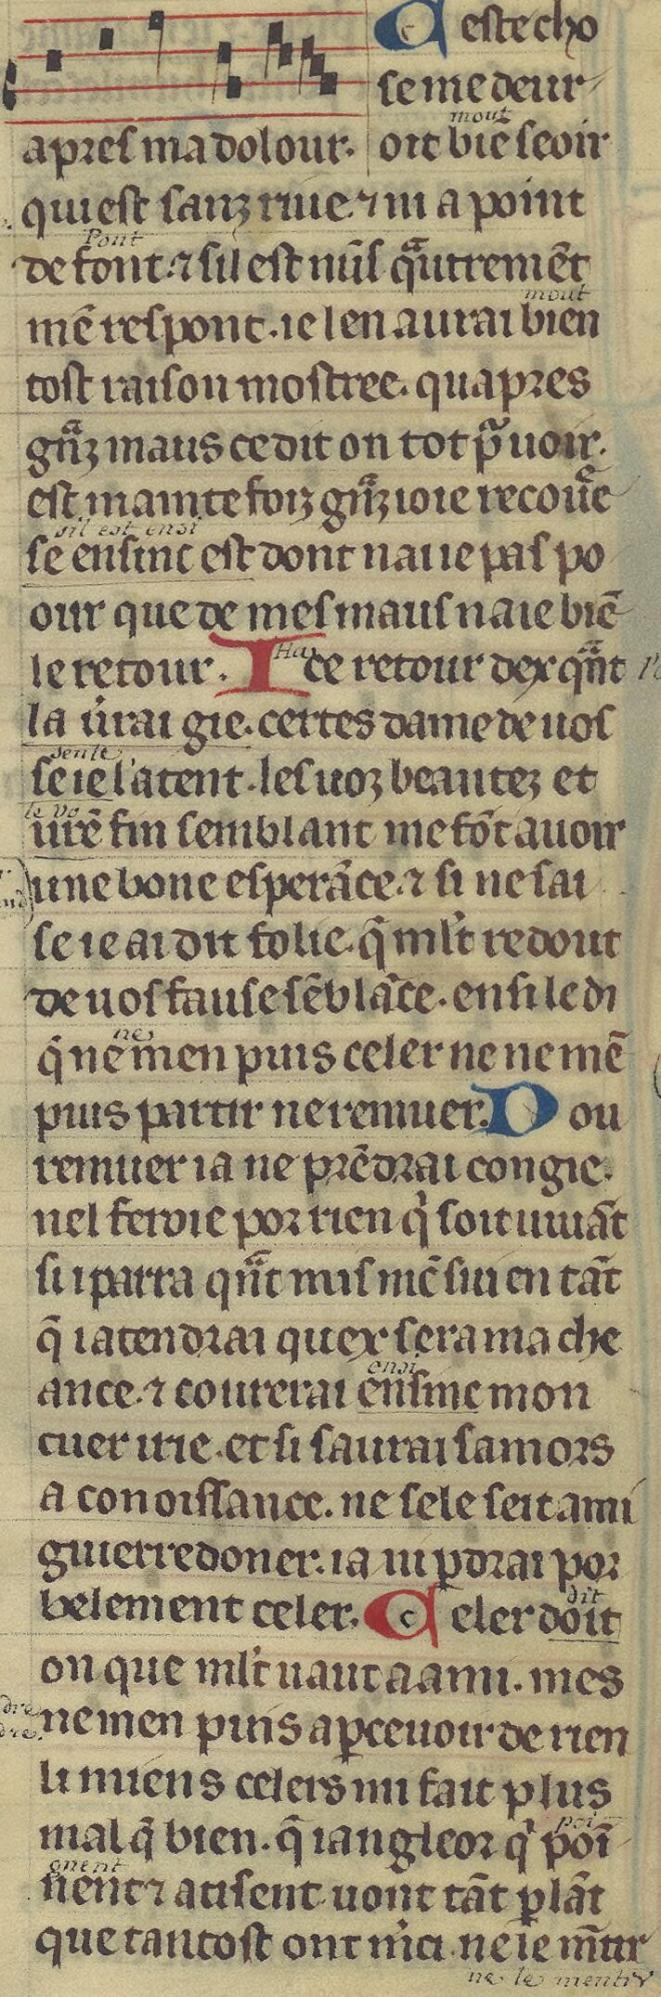 C estecho
se me deur
apres ma dolour. oit bie seoir
mout
qui est sanz riue. ⁊ ni a point
Pont
de font. ⁊ sil est nuls qautremēt
mout
mē respont. ie len aurai bien
tost raison mostree. quapres
gñz maus ce dit on tot p uoir.
est mainte foiz gñz ioie recouūe
sil est ensi
se ensinc est dont naue pas po
our que de mes maus naie biē
le retour. I ce retour dex qñt
la ūrai gie. certes dame de uos
sente
se ie l'atent. les uoz beautez et
le vo
urē fin semblant me fōt auoir
une bone esperāce. ⁊ si ne sai
se ie ai dit folie. q̄ mlt redout
de uos fause sēblāce. ensi le di
nes
q̄ ne men puis celer ne ne mē
puis partir ne remuer. D ou
remuer ia ne prēdrai congie.
nel feroie por rien q̇ soit uiuāt
si iparra qñt mis mē sui en tāt
q̄ iatendrai quex sera ma che
ensi
ance. ⁊ couurerai ensinc mon
cuer irie. et si saurai samors
a conoissance. ne sele seit ami
guierredoner. ia ni pdrai por
dit
belement celer. C eler doit
on que mlt uaut a ami. mes
ne men puis apceuoir de rien
li miens celers mi fait plus
poi
mal q̄ bien. q̄ iangleor q̇ poī
gnent
nent ⁊ atisent uont tāt plāt
que tantost ont mci ne ie mtir
ne le mentir